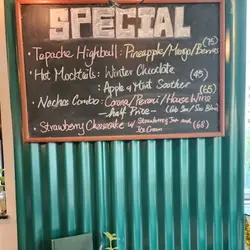 SPECIAL
• Tapache Highball : Pineapple/Mango/Berries (75)
• Hot Mocktails : Winter Chocolate (45)
Apple & Mint Soother
• Nachos Combo : Corona/Peroni/House Wine (65)
- Half Price - (Cab Sav/Sav Blanc)
• Strawberry Cheesecake w/ Strawberry Jam and Ice Cream (68)